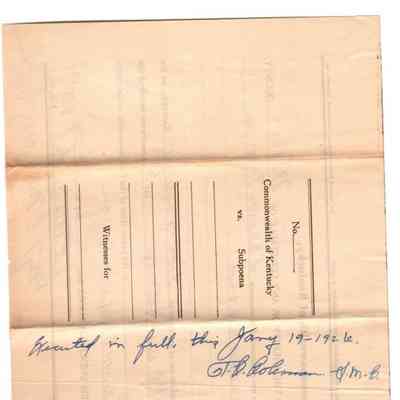 No.
Commonwealth of Kentucky
vs. Subpoena
Witnesses for
Executed in full, this Jany 19-1926.